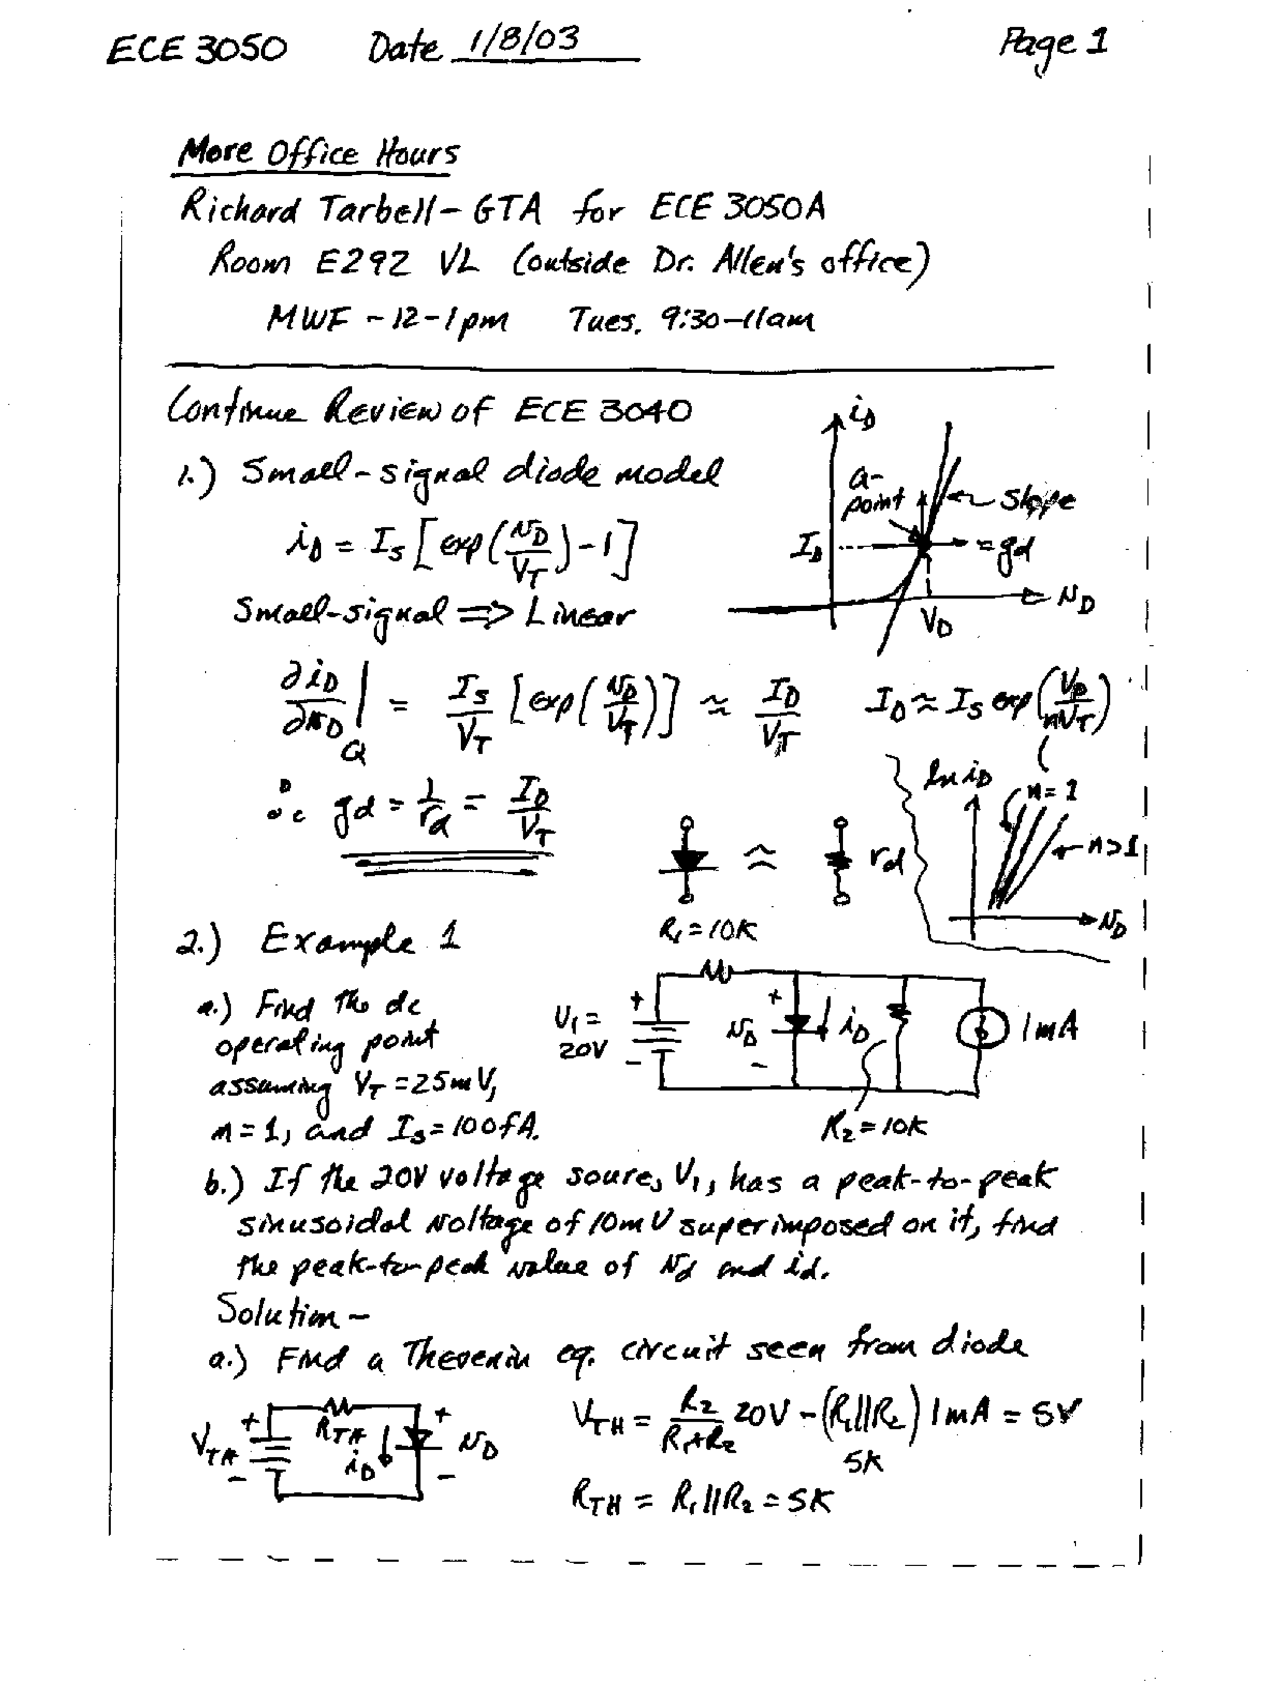 ECE 3050 Date 1/8/03 Page 1
More Office Hours
Richard Tarbell - GTA for ECE 3050A
Room E292 VL (outside Dr. Allen's office)
MWF - 12-1pm Tues. 9:30-11am
Continue Review of ECE 3040
1.) Small-signal diode model
i_D = I_S [exp(v_D/V_T) - 1]
Small-signal => Linear
i_D
Q-
point
slope
= gd
I_D
V_D
v_D
∂i_D/∂v_D |_Q = I_S/V_T [exp(v_D/V_T)] ≈ I_D/V_T I_D ≈ I_S exp(V_D/nV_T)
∴ gd = 1/rd = I_D/V_T
≈ rd
ln i_D
n=1
n>1
v_D
2.) Example 1
R1=10K
a.) Find the dc
operating point
assuming V_T = 25mV,
n=1, and I_S = 100fA.
V1 =
20V
+
-
+
v_D
-
i_D
1mA
R2=10K
b.) If the 20V voltage soure, V1, has a peak-to-peak
sinusoidal voltage of 10mV superimposed on it, find
the peak-to-peak value of vd and id.
Solution -
a.) Find a Thevenin eq. circuit seen from diode
V_TH
+
-
R_TH
i_D
+
v_D
-
V_TH = R2/(R1+R2) 20V - (R1||R2) 1mA = 5V
5K
R_TH = R1||R2 = 5K